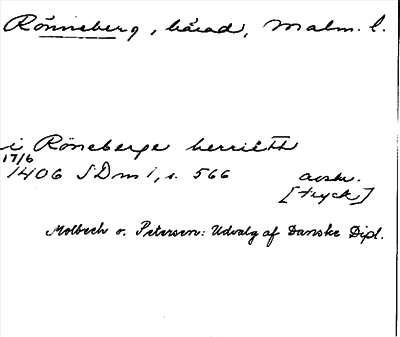 Rönneberg, härad, Malm. l.
i Röneberge herrætt
17/6
1406 SDm 1, s. 566 avskr.
[tryck]
Molbech o. Petersen: Udvalg af Danske Dipl.